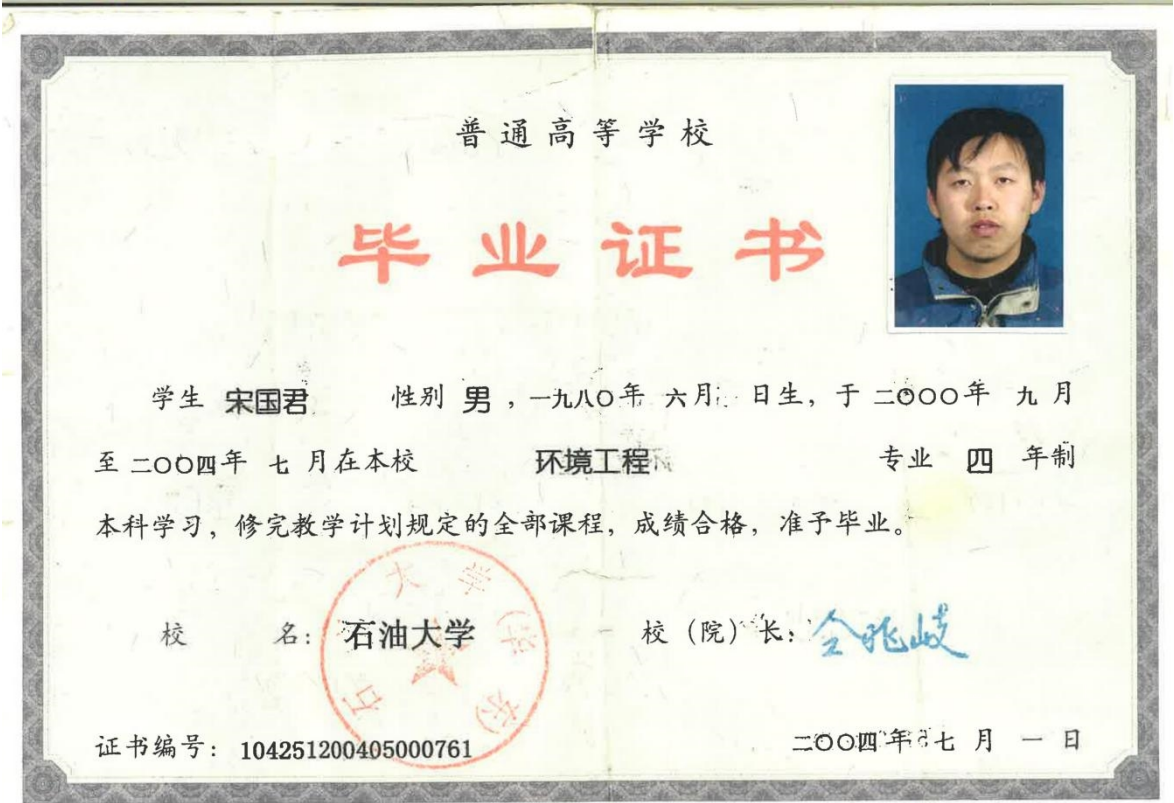 普通高等学校
毕业证书
学生 宋国君 性别 男 ，一九八〇年 六月 日生，于 二〇〇〇年 九 月
至 二〇〇四年 七 月在本校 环境工程 专业 四 年制
本科学习，修完教学计划规定的全部课程，成绩合格，准予毕业。
校 名：石油大学 校（院）长：仝兆岐
石油大学（华东）
证书编号：104251200405000761 二〇〇四年 七 月 一 日